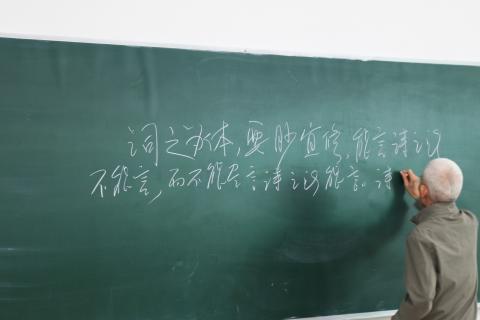 词之为体，要眇宜修，能言诗之所
不能言，而不能尽言诗之所能言。诗